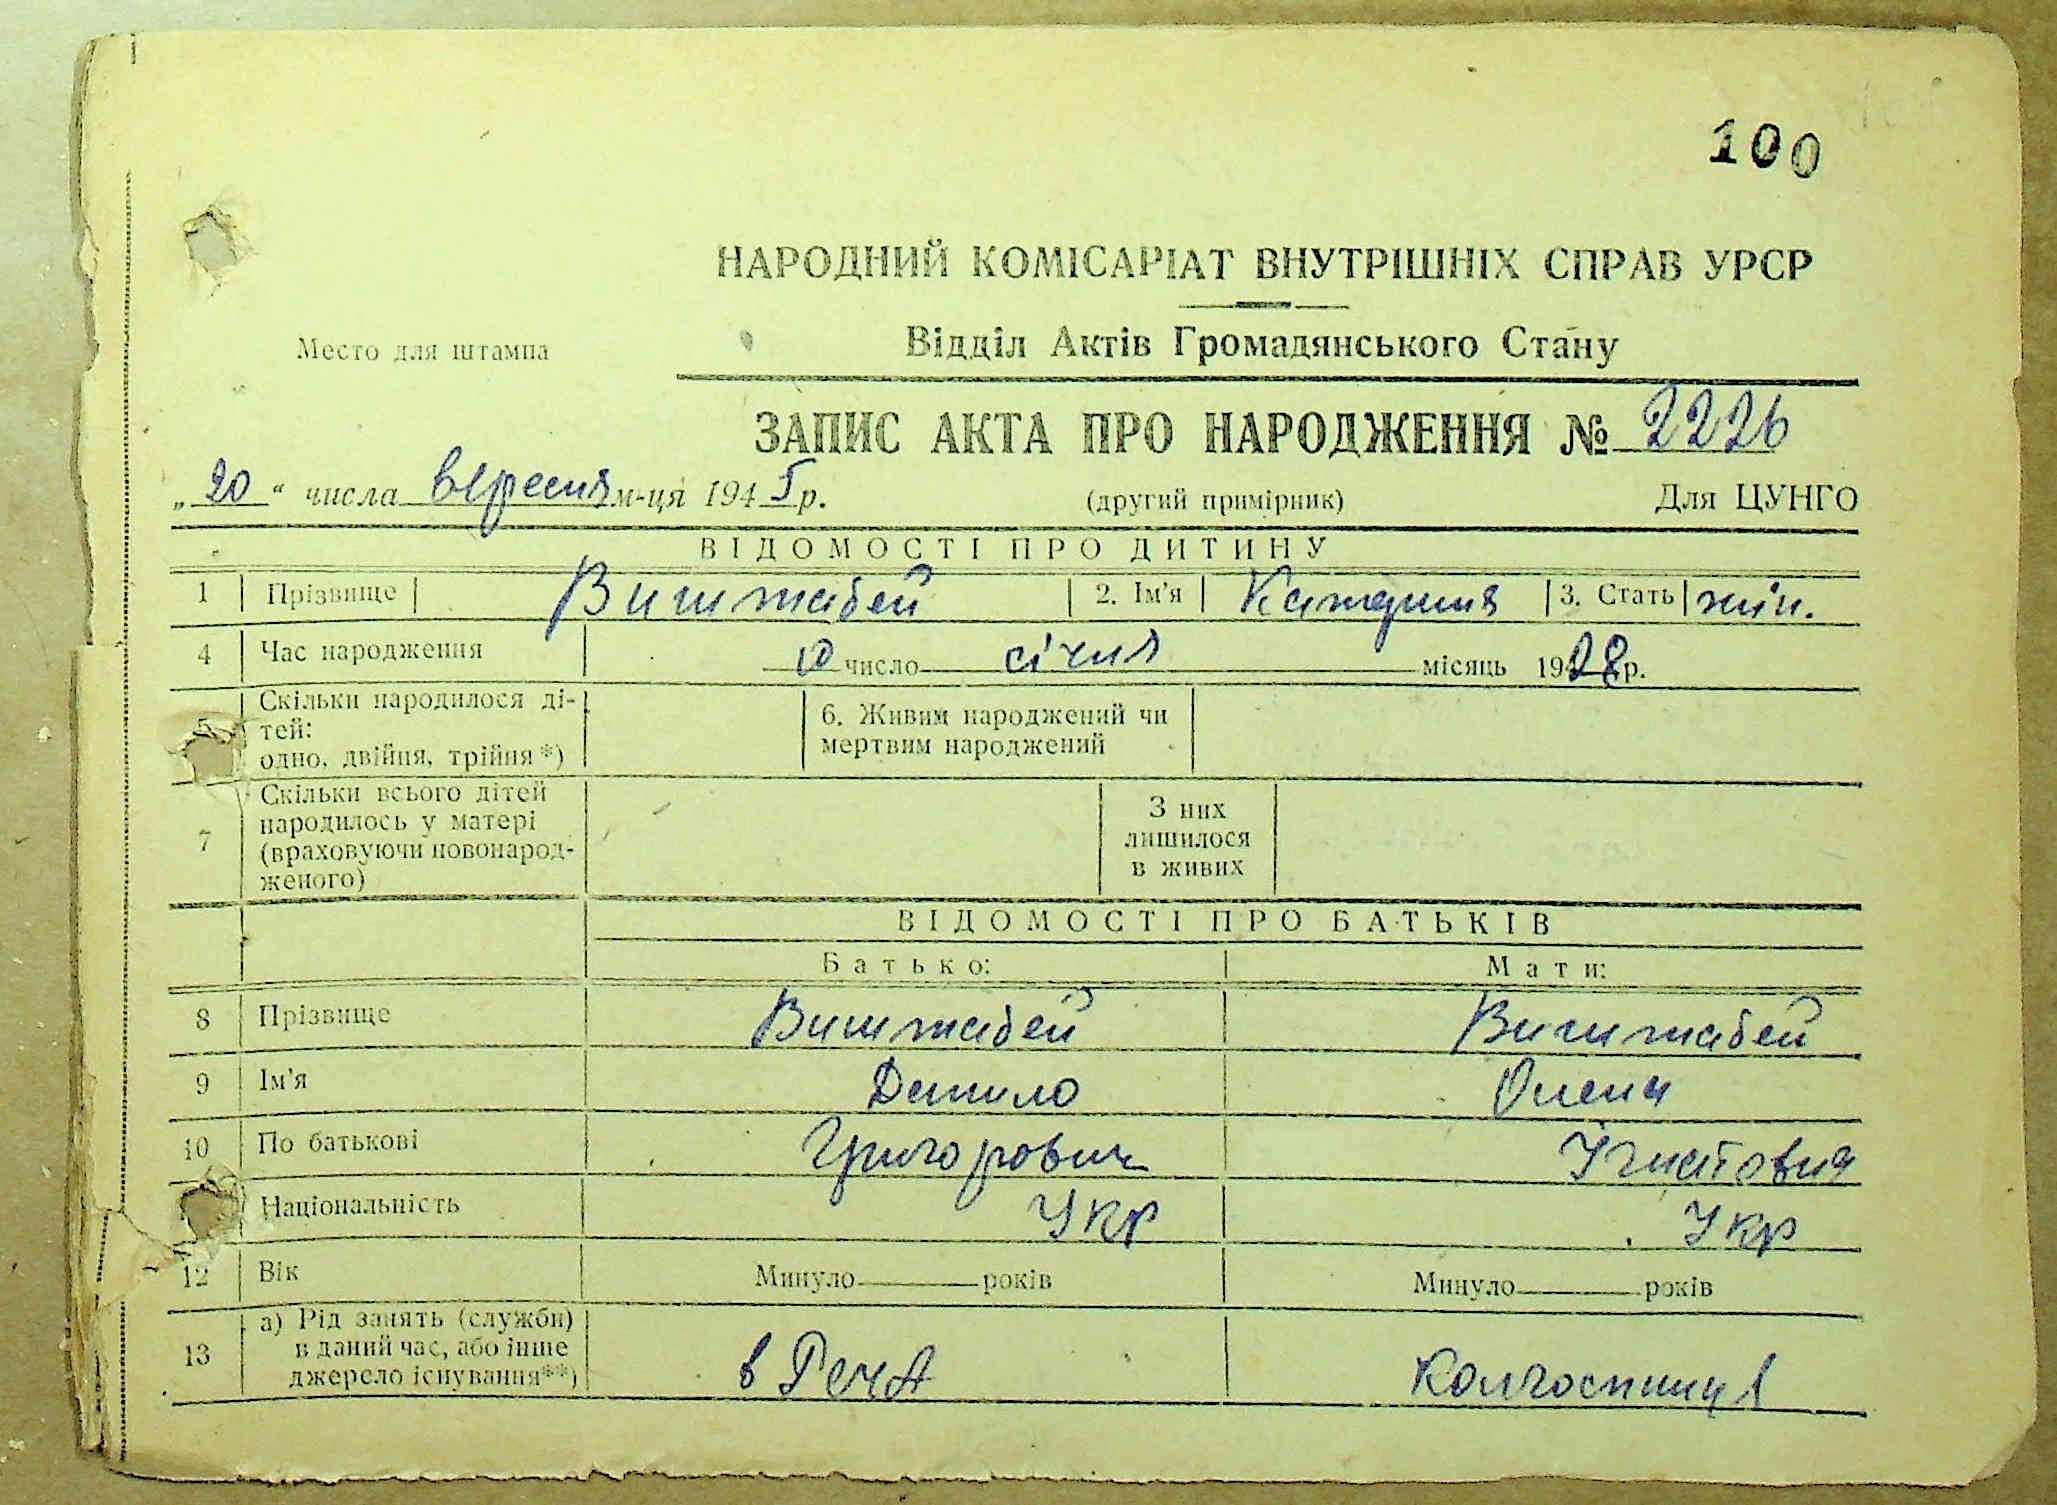 100
НАРОДНИЙ КОМІСАРІАТ ВНУТРІШНІХ СПРАВ УРСР
Место для штампа
Відділ Актів Громадянського Стану
ЗАПИС АКТА ПРО НАРОДЖЕННЯ № 2226
„20“ числа вересня м-ця 1945 р. (другий примірник) Для ЦУНГО
ВІДОМОСТІ ПРО ДИТИНУ
1 Прізвище Виштабей 2. Ім'я Катерина 3. Стать жін.
4 Час народження 10 число січня місяць 1928 р.
5 Скільки народилося ді-
тей:
одно, двійня, трійня*)
6. Живим народжений чи
мертвим народжений
7 Скільки всього дітей
народилось у матері
(враховуючи новонарод-
женого)
З них
лишилося
в живих
ВІДОМОСТІ ПРО БАТЬКІВ
Батько: Мати:
8 Прізвище Виштабей Виштабей
9 Ім'я Данило Олена
10 По батькові Григорович Ігнатовна
Національність Укр Укр
12 Вік Минуло років Минуло років
13 а) Рід занять (служби)
в даний час, або інше
джерело існування**)
в РСЧА Колгоспниця